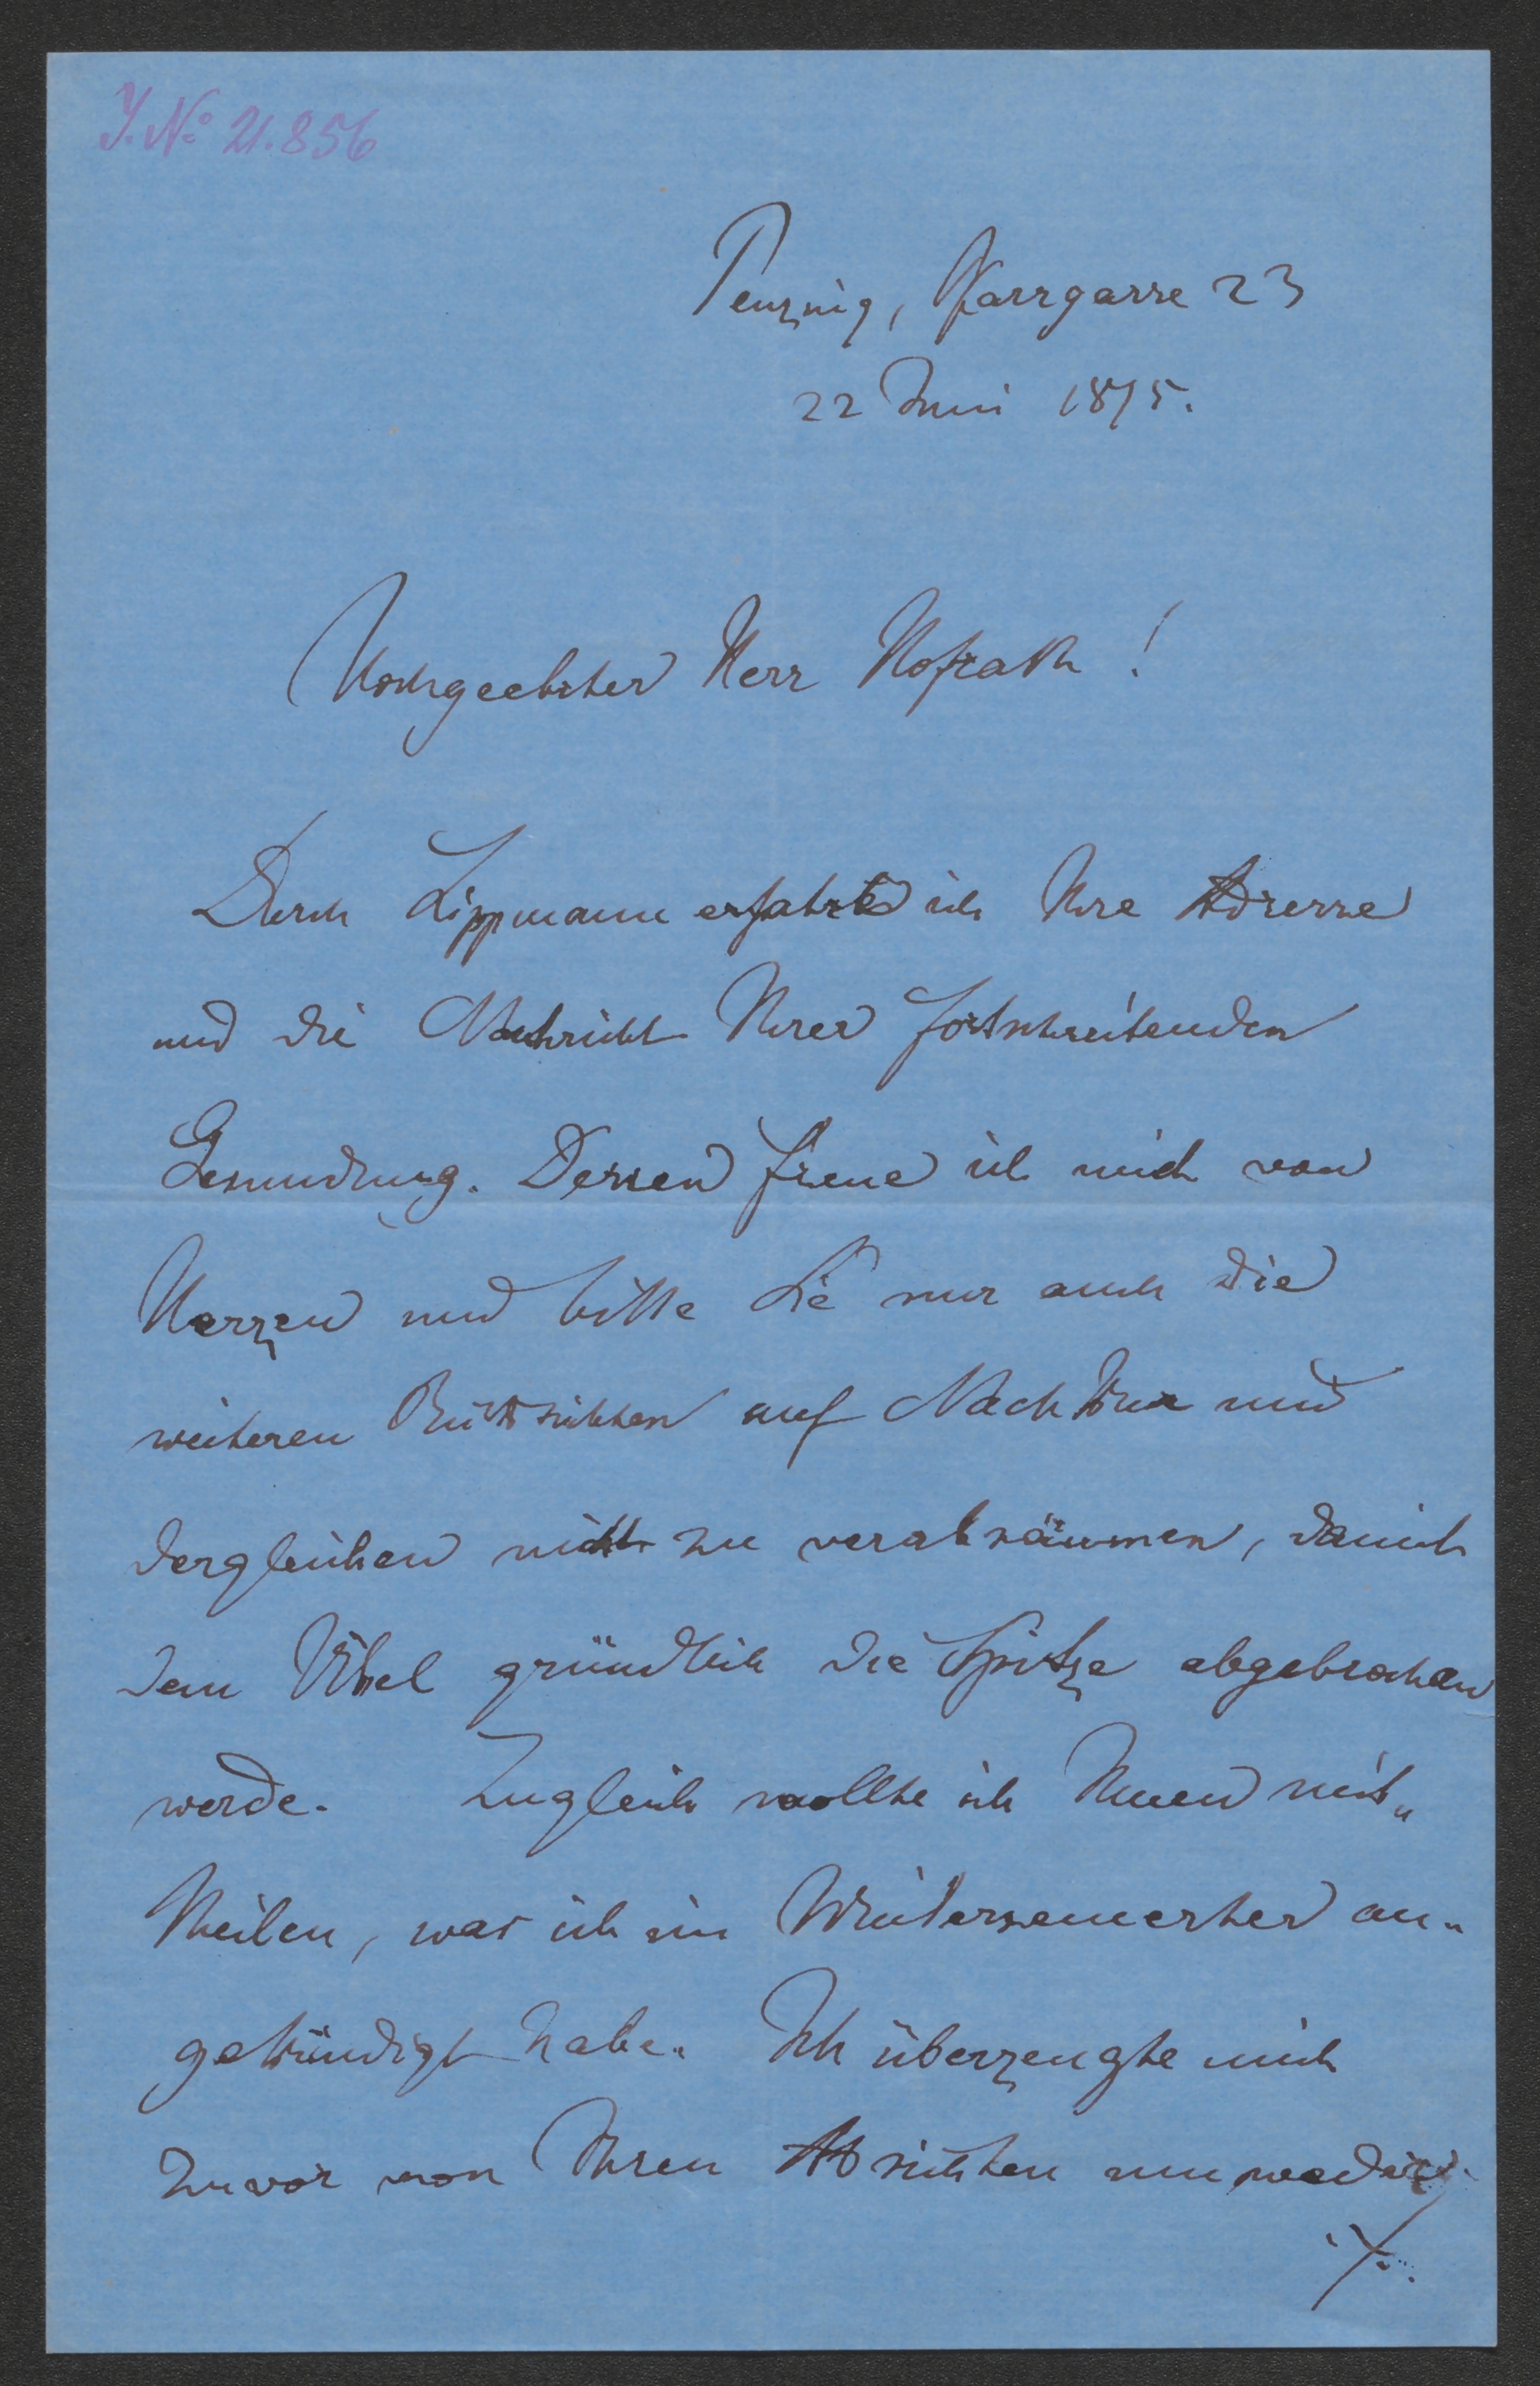 J. No 21.856
Penzing, Pfarrgasse 23
22 Juni 1875.
Hochgeehrter Herr Hofrath!
Durch Lippmann erfahre ich Ihre Adresse
und die Nachricht Ihrer fortschreitenden
Gesundung. Dessen freue ich mich von
Herzen und bitte Sie nur auch die
weiteren Rücksichten auf Nachkur und
dergleichen nicht zu verabsäumen, damit
dem Übel gründlich die Spitze abgebrochen
werde. Zugleich wollte ich Ihnen mit„
theilen, was ich im Wintersemester an„
gekündigt habe. Ich überzeugte mich
zuvor von Ihren Absichten
./.